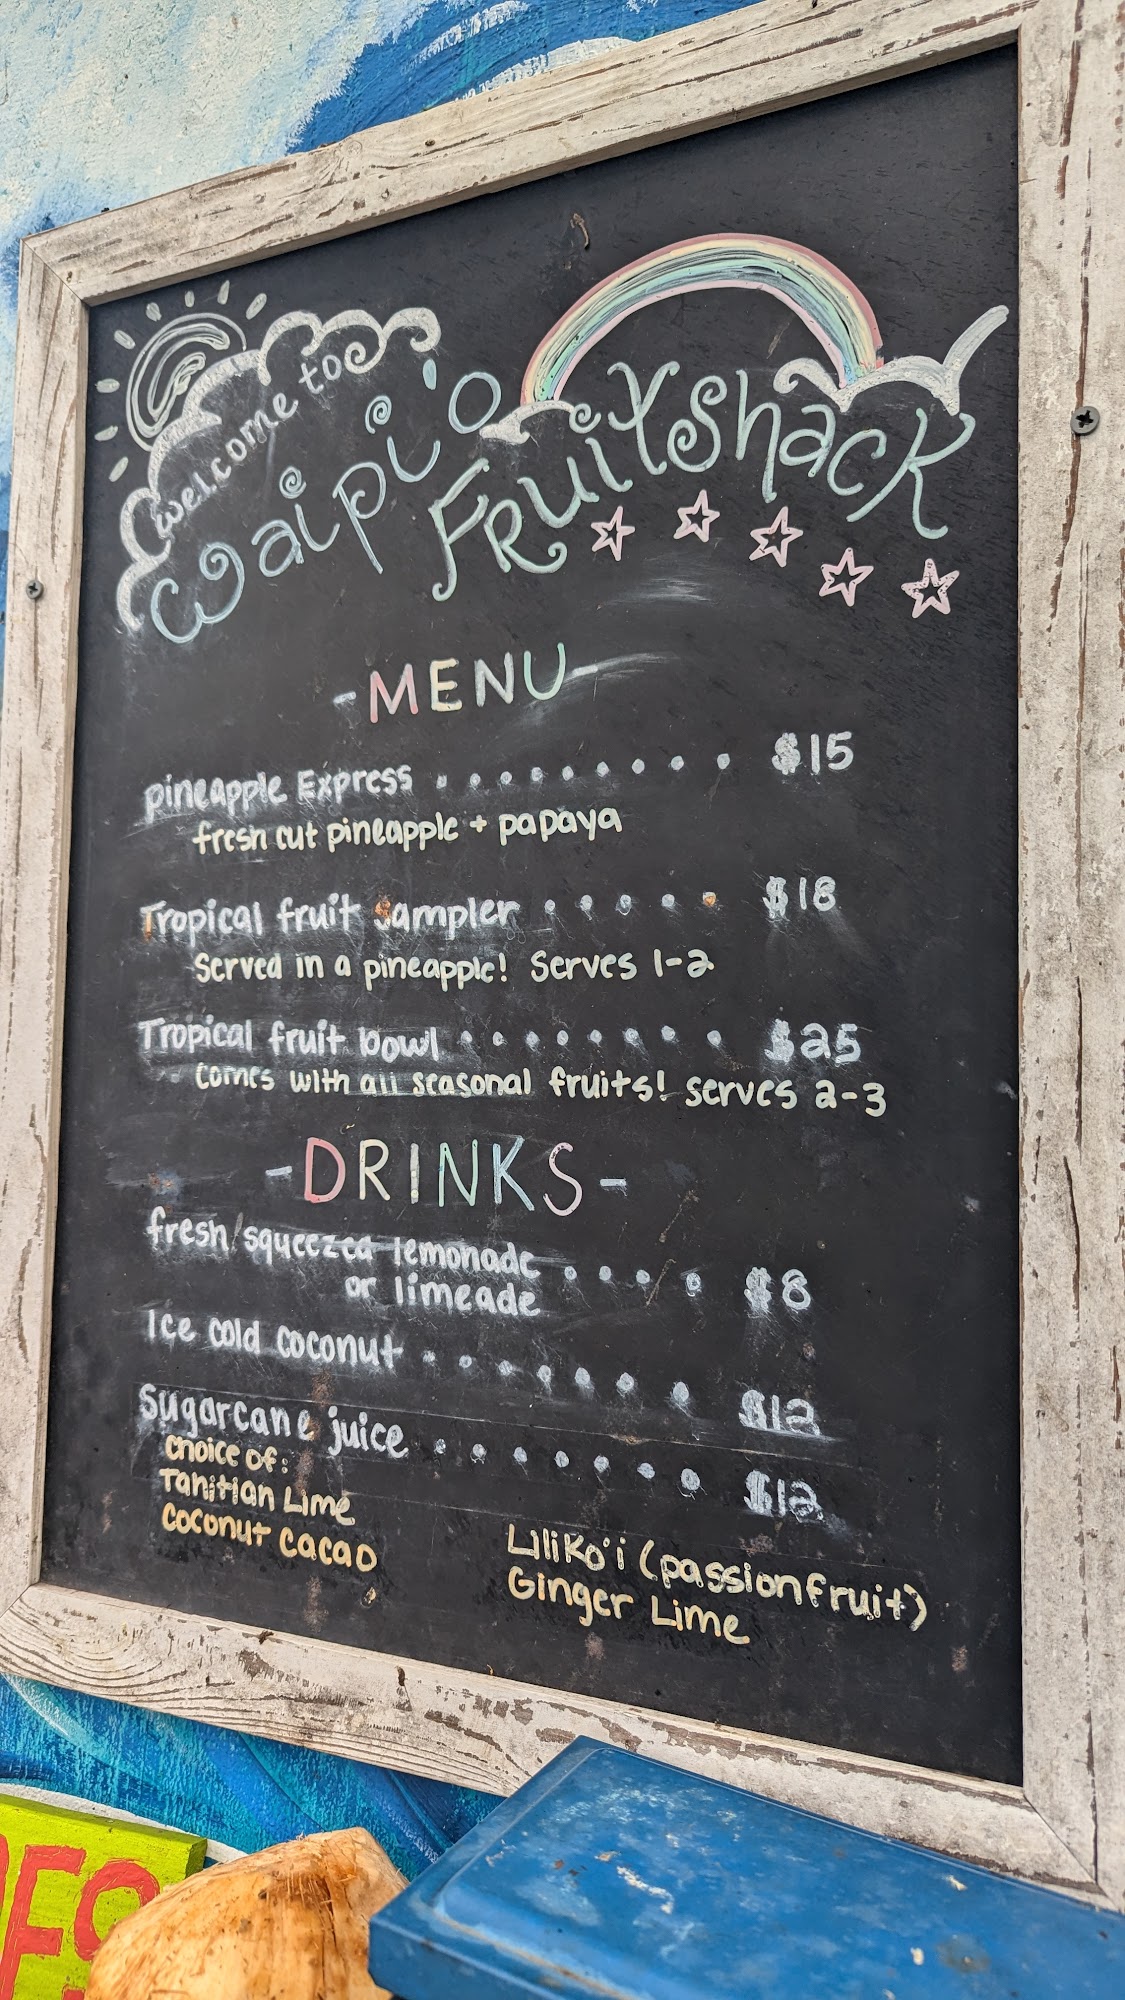 welcome to
Waipi'o
Fruitshack
-MENU-
pineapple Express . . . . . . . . . . $15
fresh cut pineapple + papaya
Tropical fruit sampler . . . . . $18
Served in a pineapple! Serves 1-2
Tropical fruit bowl . . . . . . . . $25
comes with all seasonal fruits! serves 2-3
-DRINKS-
fresh squeezed lemonade . . . . $8
or limeade
Ice cold coconut . . . . . . . $12
Sugarcane juice . . . . . . . $12
choice of:
Tahitian Lime
Coconut Cacao
Liliko'i (passionfruit)
Ginger Lime